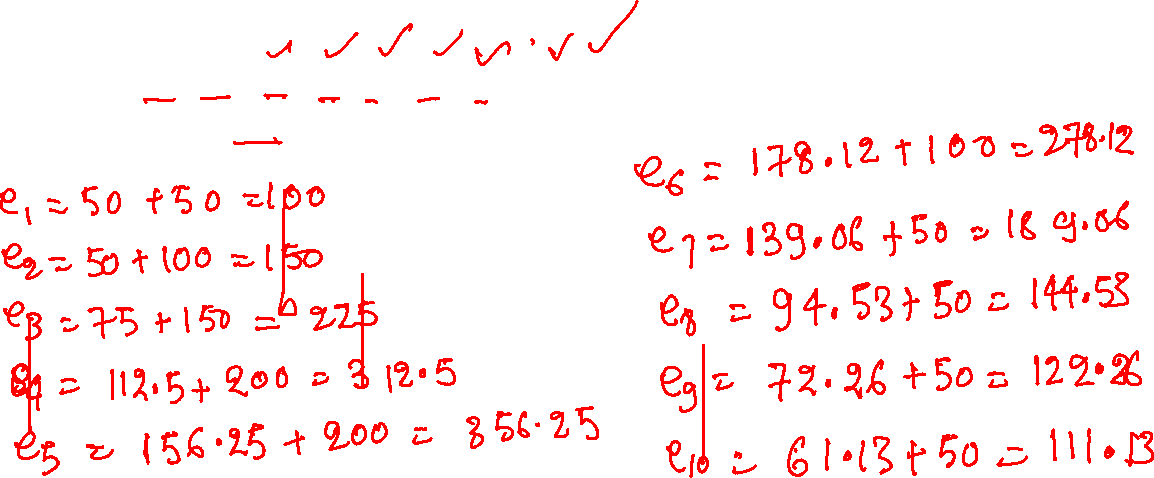 e₁ = 50 + 50 = 100
e₂ = 50 + 100 = 150
e₃ = 75 + 150 = 225
e₄ = 112.5 + 200 = 312.5
e₅ = 156.25 + 200 = 356.25
e₆ = 178.12 + 100 = 278.12
e₇ = 139.06 + 50 = 189.06
e₈ = 94.53 + 50 = 144.53
e₉ = 72.26 + 50 = 122.26
e₁₀ = 61.13 + 50 = 111.13